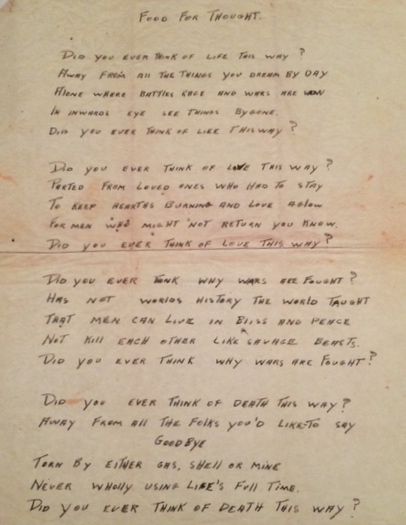 FOOD FOR THOUGHT.
DID YOU EVER THINK OF LIFE THIS WAY?
AWAY FROM ALL THE THINGS YOU DREAM BY DAY
ALONE WHERE BATTLES RAGE AND WARS ARE WON
IN INWARDS EYE SEE THINGS BYGONE.
DID YOU EVER THINK OF LIFE THIS WAY?
DID YOU EVER THINK OF LOVE THIS WAY?
PARTED FROM LOVED ONES WHO HAD TO STAY
TO KEEP HEARTHS BURNING AND LOVE AGLOW
FOR MEN WHO MIGHT NOT RETURN YOU KNOW.
DID YOU EVER THINK OF LOVE THIS WAY?
DID YOU EVER THINK WHY WARS ARE FOUGHT?
HAS NOT WORLDS HISTORY THE WORLD TAUGHT
THAT MEN CAN LIVE IN BLISS AND PEACE
NOT KILL EACH OTHER LIKE SAVAGE BEASTS.
DID YOU EVER THINK WHY WARS ARE FOUGHT?
DID YOU EVER THINK OF DEATH THIS WAY?
AWAY FROM ALL THE FOLKS YOU'D LIKE TO SAY
GOODBYE
TORN BY EITHER GAS, SHELL OR MINE
NEVER WHOLLY USING LIFE'S FULL TIME.
DID YOU EVER THINK OF DEATH THIS WAY?